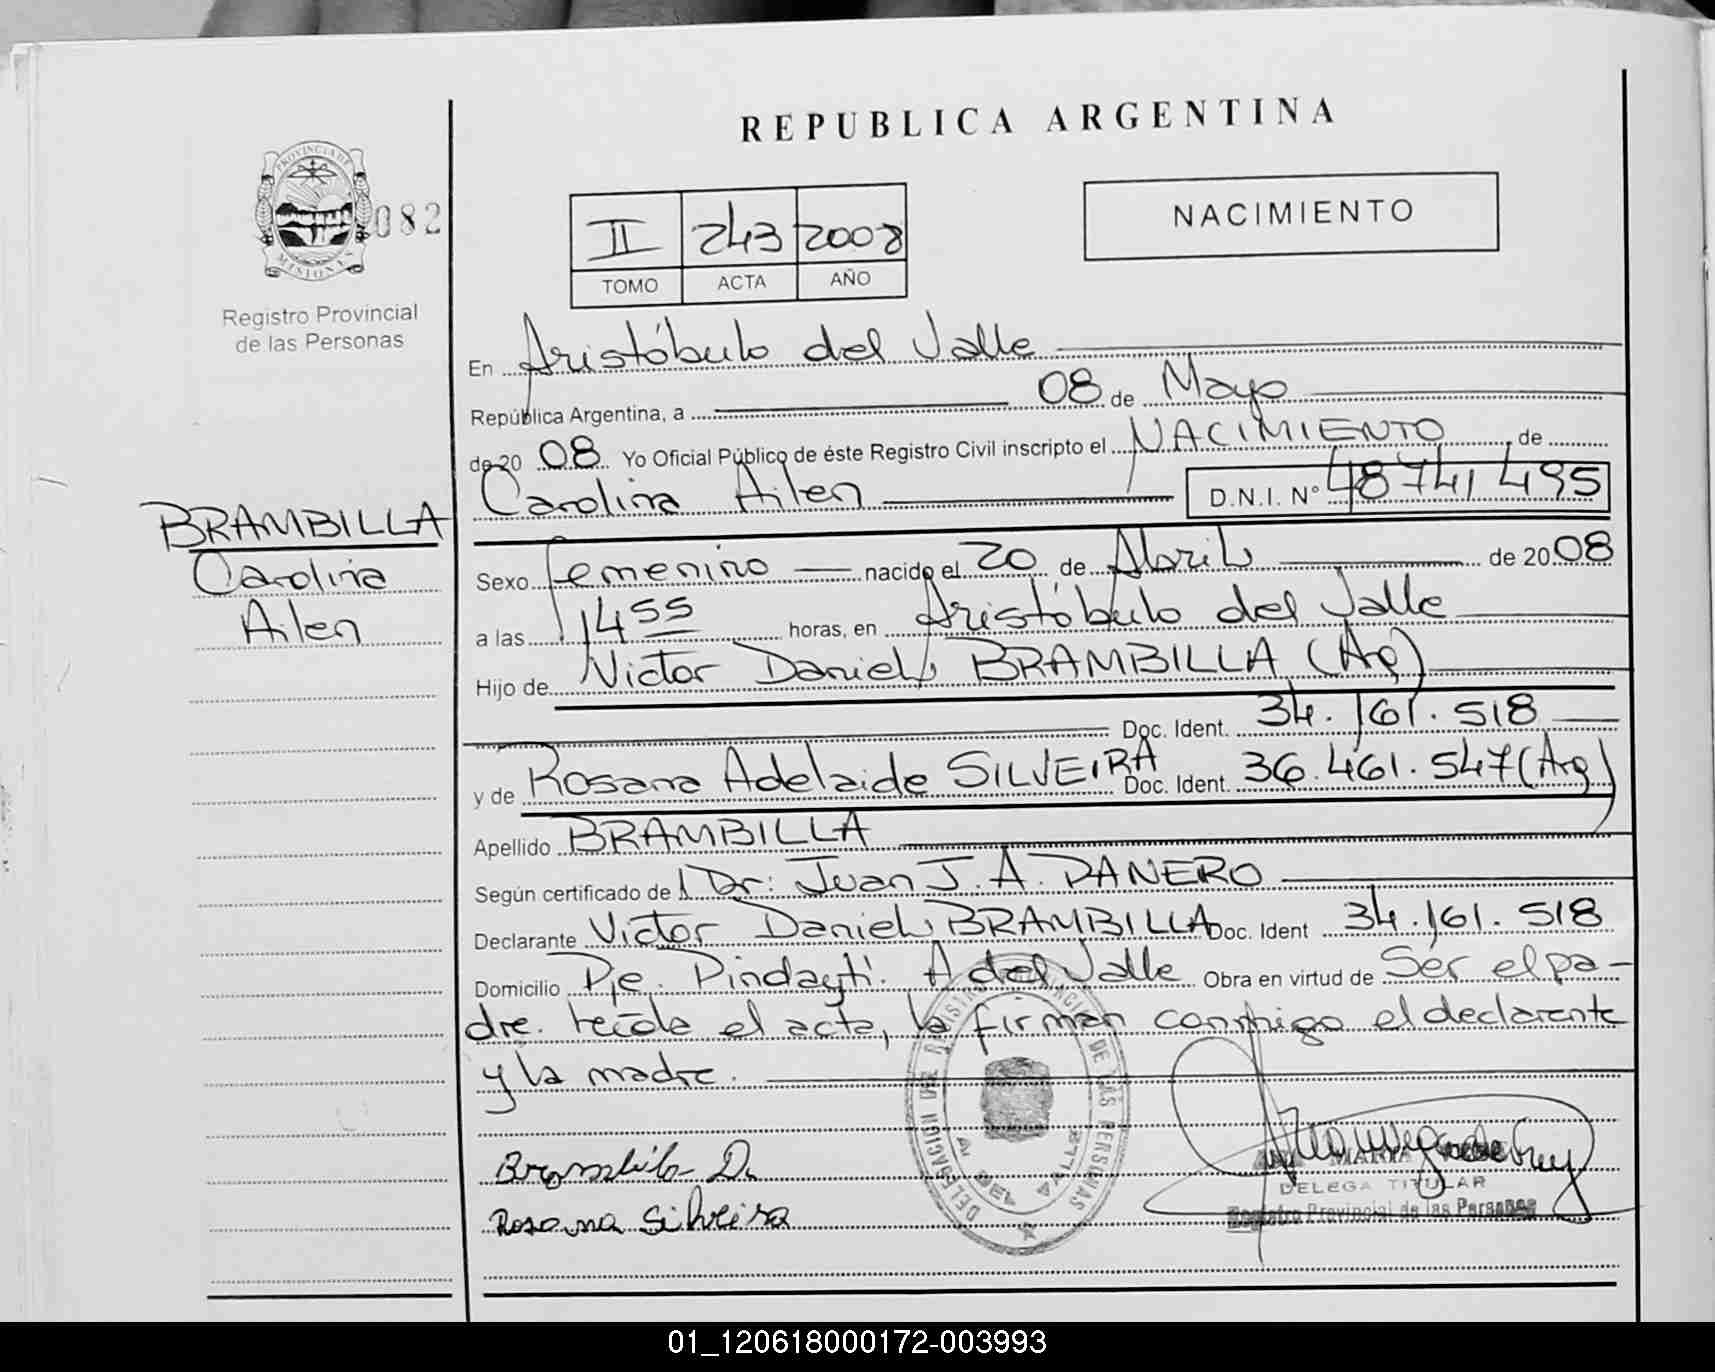 REPUBLICA ARGENTINA
PROVINCIA DE
MISIONES
082
Registro Provincial
de las Personas
II 243 2008
TOMO ACTA AÑO
NACIMIENTO
En Aristóbulo del Valle
República Argentina, a 08 de Mayo
de 20 08 Yo Oficial Público de éste Registro Civil inscripto el NACIMIENTO de
Carolina Ailen D.N.I. Nº 48741495
BRAMBILLA
Carolina
Ailen
Sexo femenino nacido el 20 de Abril de 2008
a las 14 55 horas, en Aristóbulo del Valle
Hijo de Victor Daniel BRAMBILLA (Ag)
Doc. Ident. 34.161.518
y de Rosana Adelaide SILVEIRA Doc. Ident. 36.461.547 (Arg)
Apellido BRAMBILLA
Según certificado de Dr: Juan J. A. DANERO
Declarante Victor Daniel BRAMBILLA Doc. Ident 34.161.518
Domicilio Pje. Pindayti. A del Valle Obra en virtud de Ser el pa-
dre. leída el acta, la firman conmigo el declarante
y la madre.
DELEGACION DEL REGISTRO PROVINCIAL DE LAS PERSONAS
A. DEL VALLE
Brambila D.
Rosana Silveira
DELEGA TITULAR
Registro Provincial de las Personas
01_120618000172-003993